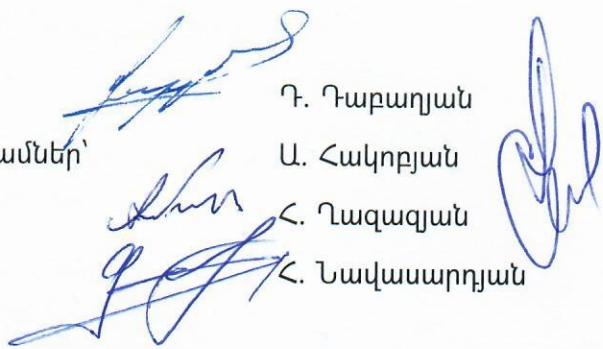 Դ. Դաբաղյան
ամներ՝ Ա. Հակոբյան
Հ. Ղազազյան
Հ. Նավասարդյան